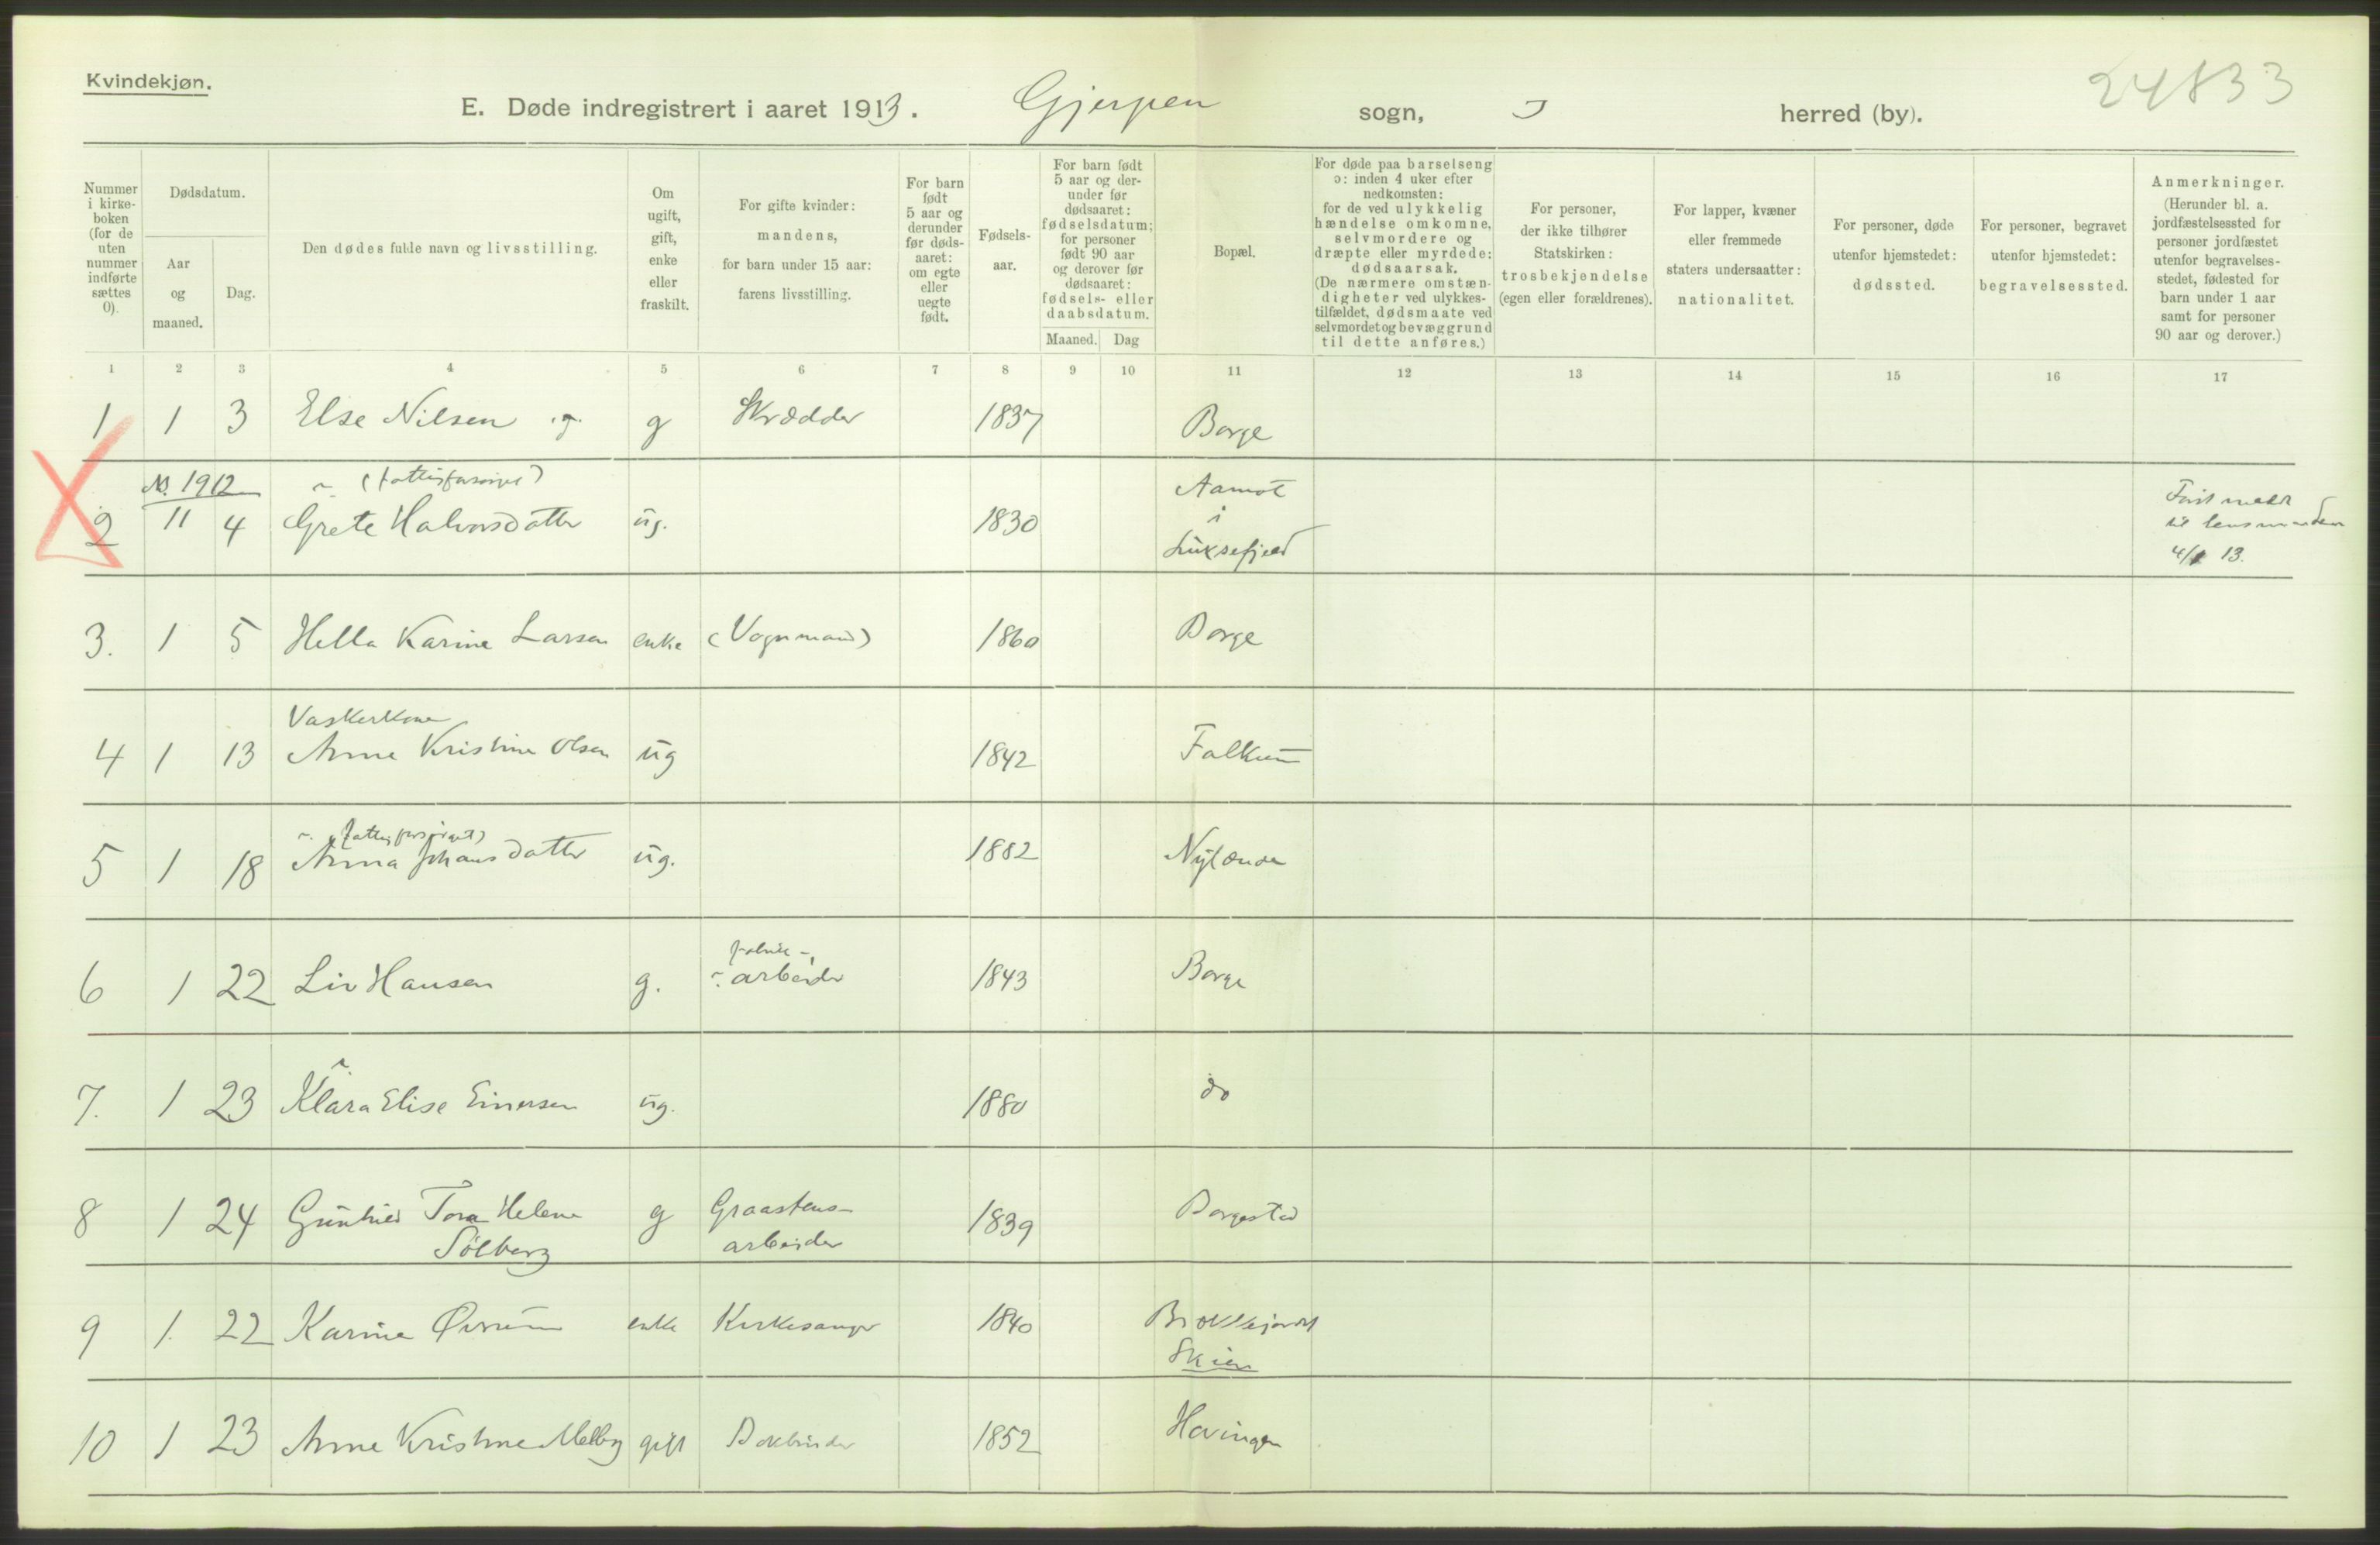 Kvindekjøn.
24833
E. Døde indregistrert i aaret 1913. Gjerpen sogn, herred (by).
Nummer i kirke-boken (for de uten nummer indførte sættes 0).
Dødsdatum.
Aar og maaned.
Dag.
Den dødes fulde navn og livsstilling.
Om ugift, gift, enke eller fraskilt.
For gifte kvinder: mandens, for barn under 15 aar: farens livsstilling.
For barn født 5 aar og derunder før døds-aaret: om egte eller uegte født.
Fødsels-aar.
For barn født 5 aar og der-under før dødsaaret: fødselsdatum; for personer født 90 aar og derover før dødsaaret: fødsels- eller daabsdatum.
Maaned. Dag
Bopæl.
For døde paa barselseng ɔ: inden 4 uker efter nedkomsten: for de ved ulykkelig hændelse omkomne, selvmordere og dræpte eller myrdede: dødsaarsak. (De nærmere omstæn-digheter ved ulykkes-tilfældet, dødsmaate ved selvmordet og bevæggrund til dette anføres.)
For personer, der ikke tilhører Statskirken: trosbekjendelse (egen eller forældrenes).
For lapper, kvæner eller fremmede staters undersaatter: nationalitet.
For personer, døde utenfor hjemstedet: dødssted.
For personer, begravet utenfor hjemstedet: begravelsessted.
Anmerkninger. (Herunder bl. a. jordfæstelsessted for personer jordfæstet utenfor begravelses-stedet, fødested for barn under 1 aar samt for personer 90 aar og derover.)
1 2 3 4 5 6 7 8 9 10 11 12 13 14 15 16 17
1 1 3 Else Nilsen g Skrædder 1837 Borge
1912 (fattigforsørget) Aamot
2 11 4 Grete Halvorsdatter ug. 1830 i Luksefjeld
Først meldt til lensmanden 4/1 13.
3. 1 5 Hella Karine Larsen enke (Vognmand) 1860 Borge
Vaskerkone
4 1 13 Anne Kristine Olsen ug 1842 Falkum
(fattigforsørget)
5 1 18 Anna Johansdatter ug. 1882 Nylænde
fabrik-
6 1 22 Liv Hansen g. arbeider 1843 Borge
7. 1 23 Klara Elise Einersen ug. 1880 do
8 1 24 Gunhild Tora Helene g Graastens- 1839 Borgestad
Solberg arbeider
9 1. 22 Karine enke Kirkesanger 1840
Skien
10 1 23 Anne Kristine Melby gift Bokbinder 1852 Hovingen